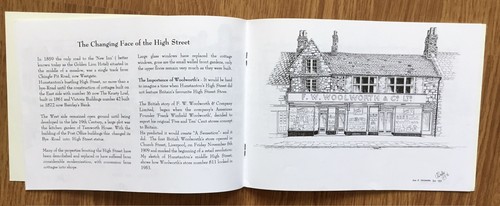 The Changing Face of the High Street
In 1859 the only road to the 'New Inn' ( better
known today as the Golden Lion Hotel) situated in
the middle of a meadow, was a single track lower
Chough Pit Road, now Westgate.
Hunstanton's bustling High Street, no more than a
bye-Road until the construction of cottages built on
the East side with number 36 now The Krusty Loaf,
built in 1861 and Victoria Buildings number 42 built
in 1872 now Barclay's Bank.
The West side remained open ground until being
developed in the late 19th Century, a large plot was
the kitchen garden of Tamworth House. With the
building of the Post Office buildings this changed in
Bye Road into High Street status.
Many of the properties fronting the High Street have
been demolished and replaced or have suffered from
considerable modernisation, with conversion from
cottages into shops.
Large glass windows have replaced the cottage
windows, gone are the small walled front gardens, only
the upper floors remain very much as they were built.
The Importance of Woolworth's - It would be hard
to imagine a time when Hunstanton's High Street did
not feature Britain's favourite High Street store.
The British story of F. W. Woolworth & Company
Limited, began when the company's American
Founder 'Frank Winfield Woolworth', decided to
export his original Five and Ten Cent stores concept
to Britain.
He predicted it would cause "A Sensation" and it
did. The first British Woolworth's store opened in
Church Street, Liverpool, on Friday November 5th
1909 and marked the beginning of a retail revolution.
My sketch of Hunstanton's middle High Street
shows how Woolworth's store number #13 looked in
1981.
F. W. WOOLWORTH & Co. LTD.